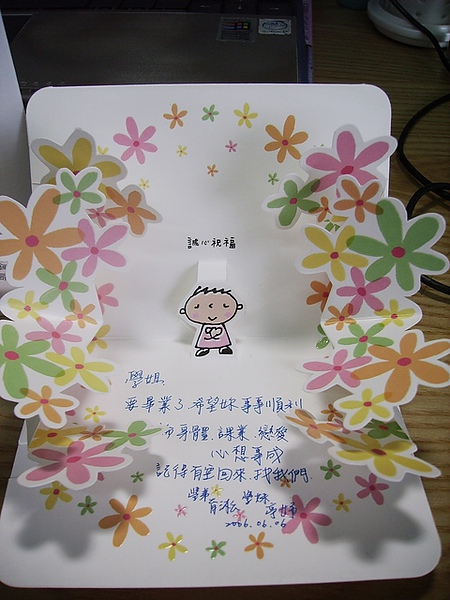 誠心祝福
學姐
要畢業了希望妳事事順利
身體.課業.戀愛
心想事成
記得有空回來找我們.
學弟 學妹
2006.06.06